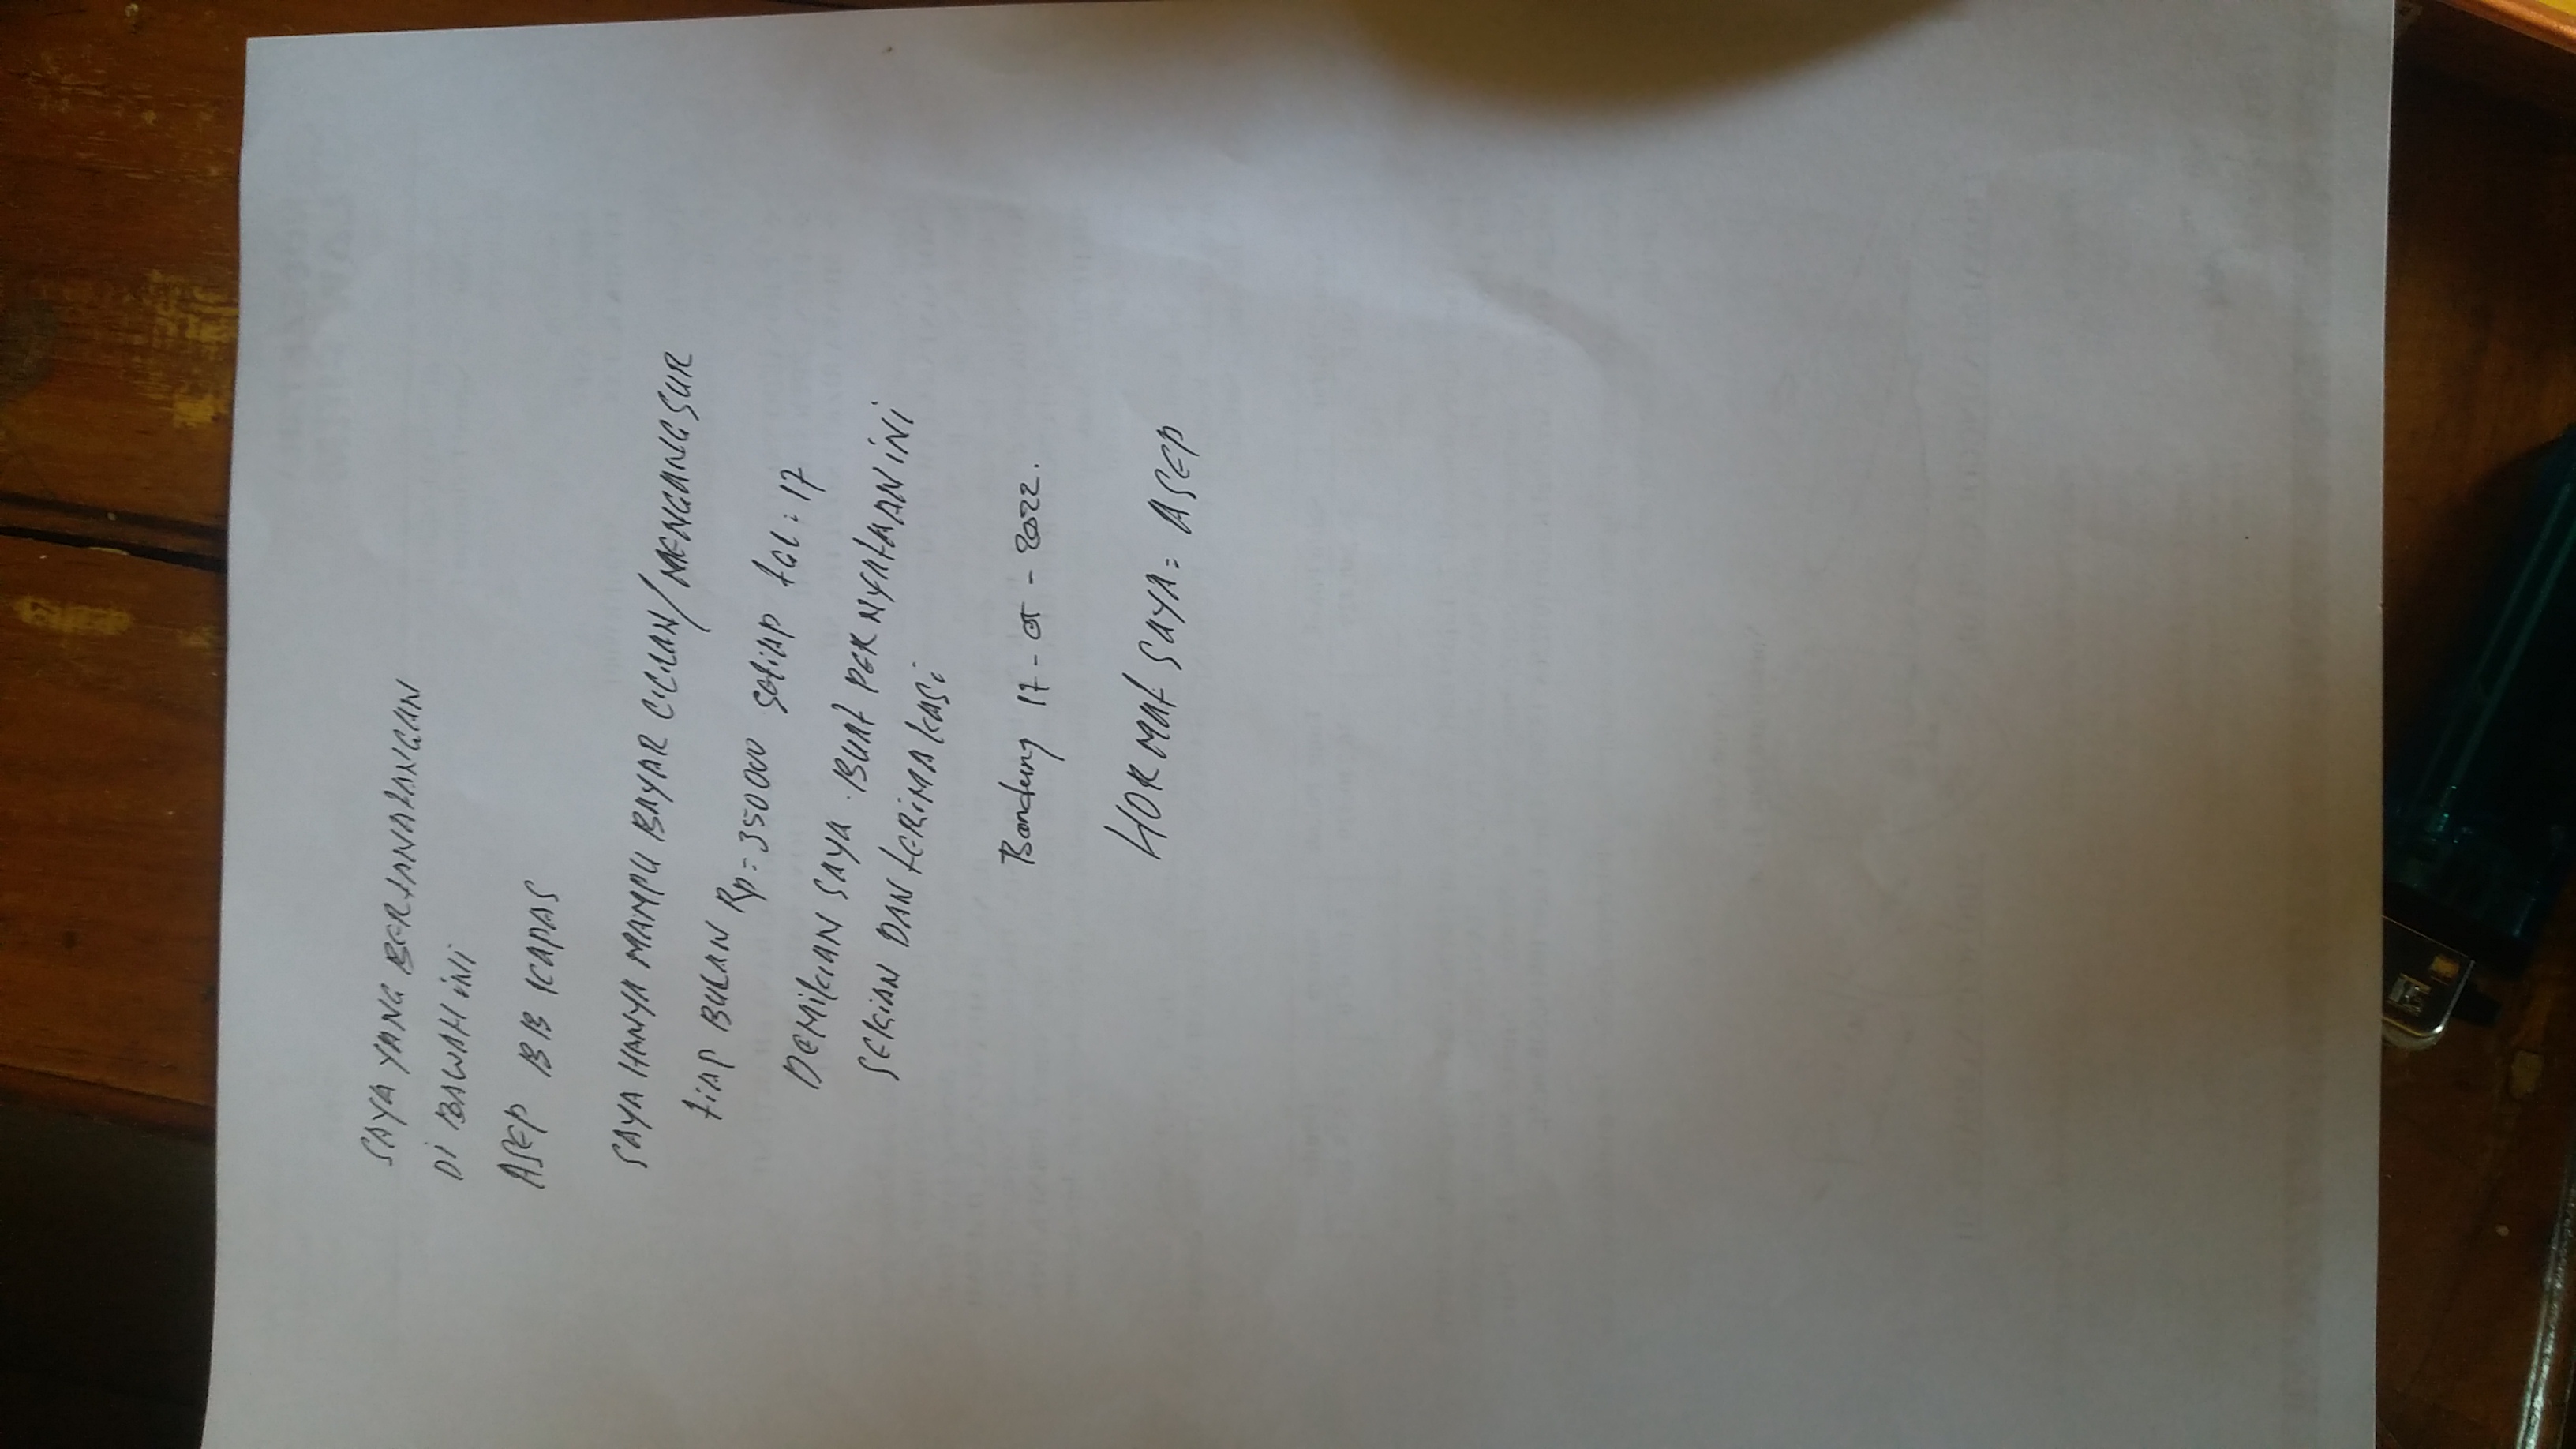 SAYA YANG BERTANATANGAN
DI BAWAH iNi
ASEP BB KAPAS
SAYA HANYA MAMPU BAYAR CiCiLAN/MENGANGSUR
tiAP BULAN Rp = 350000 Setiap tGL : 17
DEMiKiAN SAYA BUAt PERNYAtAAN iNi
SEKiAN DAN tERiMA KASi
Bandung 17 - - 2022.
HORMAt SAYA = ASEP